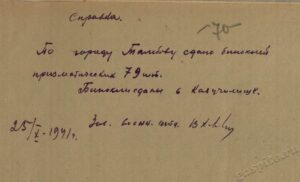 Справка.
-70-
По городу Тамбову сдано биноклей
призматических 79 шт.
Бинокли сданы в Кавучилище.
25/X-1941г. Зав.